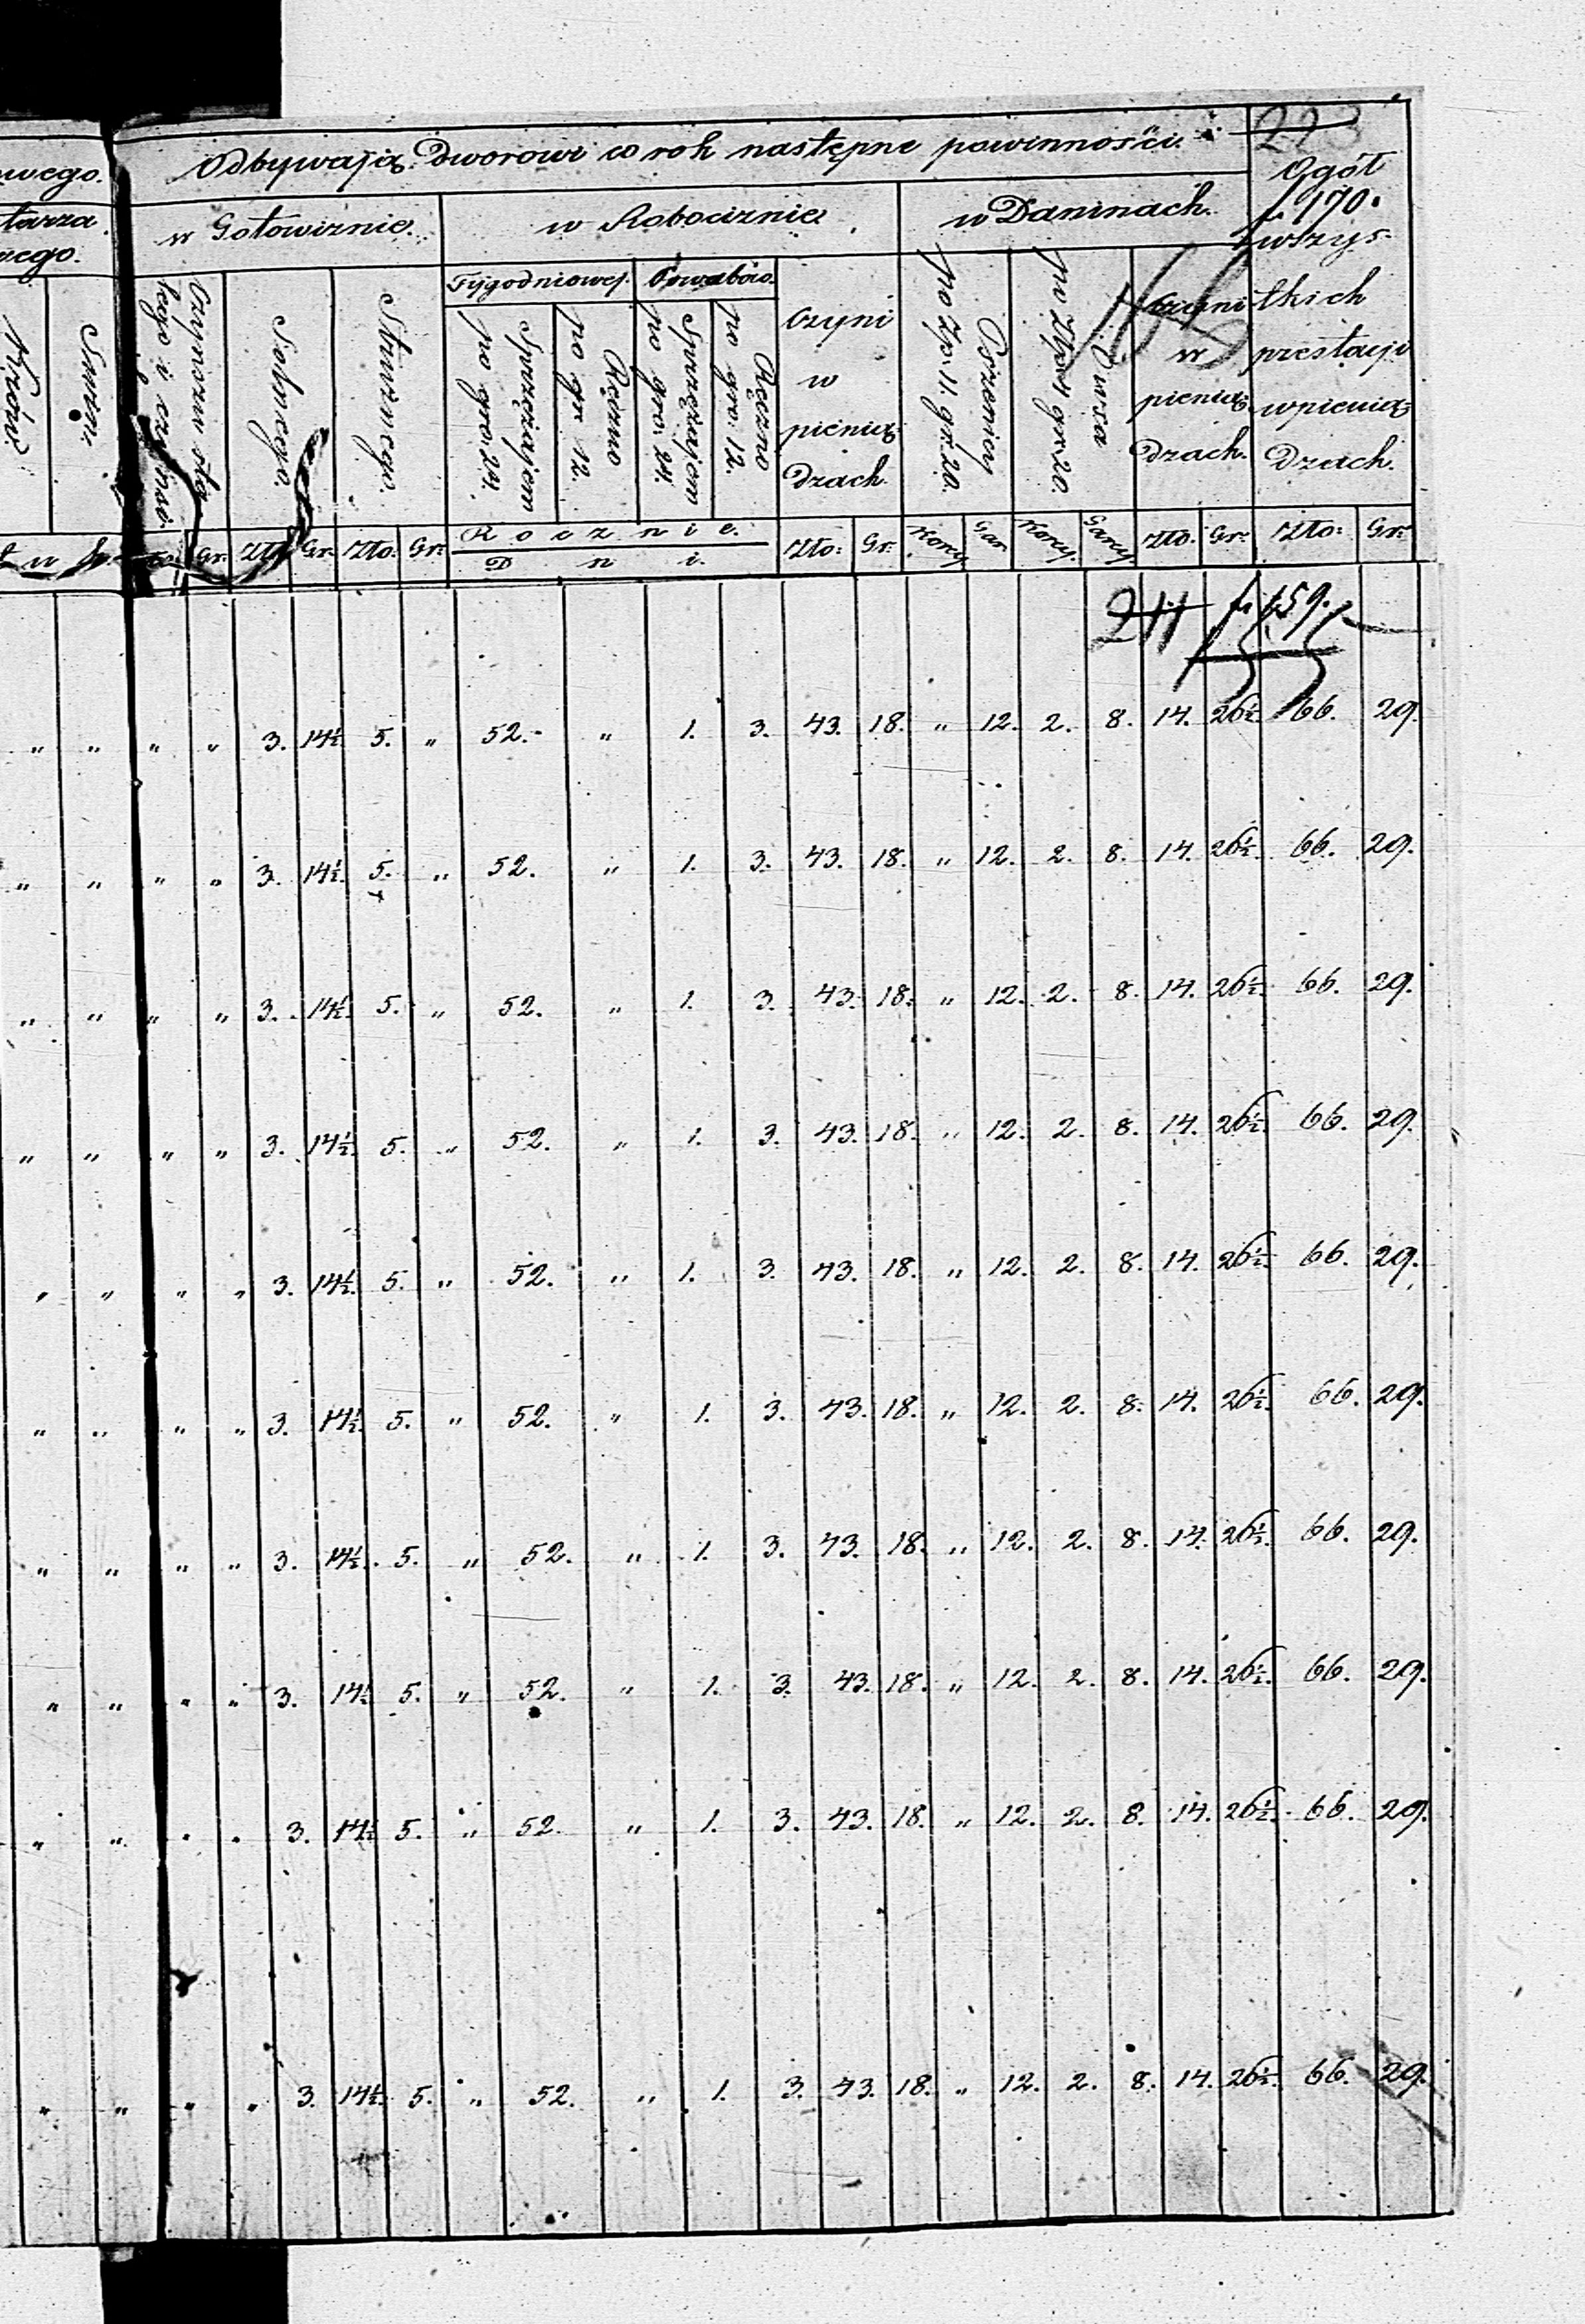 Odbywają Dworowi co rok następne powinności.
223
Ogół
f. 170.
wszys-
tkich
prestacyi
w pienią-
dzach.
wego.
tarza
wego.
w Gotowiznie.
w Robociznie
w Daninach.
Tygodniowej.
Powabów.
Snim.
Czynszu sta-
łego i
Solnego.
Strużnego.
Sprzężajem
po gro: 24.
Ręczno
po gr 12.
Sprzężajem
po gro: 24.
Ręczno
po gro: 12.
Czyni
w
pienią-
dzach
Pszenicy
po Zp. 11. gr. 20.
Owsa
po Złp. gr. 20.
Czyni
w
pienią-
dzach.
Gr: Zło: Gr: Zło: Gr: Rocznie. Zło: Gr: Korcy Gar. Korcy. Garcy. Zło. Gr: Zło: Gr:
Dni.
211 f. 159.
" " " " 3. 14½ 5. " 52. " 1. 3. 43. 18. " 12. 2. 8. 14. 26½. 66. 29.
" " " " 3. 14½. 5. " 52. " 1. 3. 43. 18. " 12. 2. 8. 14. 26½. 66. 29.
" " " " 3. 14½. 5. " 52. " 1. 3. 43. 18. " 12. 2. 8. 14. 26½. 66. 29.
" " " " 3. 14½. 5. " 52. " 1. 3. 43. 18. " 12. 2. 8. 14. 26½. 66. 29.
" " " " 3. 14½. 5. " 52. " 1. 3. 43. 18. " 12. 2. 8. 14. 26½. 66. 29.
" " " " 3. 14½. 5. " 52. " 1. 3. 43. 18. " 12. 2. 8. 14. 26½. 66. 29.
" " " " 3. 14½. 5. " 52. " 1. 3. 43. 18. " 12. 2. 8. 14. 26½. 66. 29.
" " " " 3. 14½ 5. " 52. " 1. 3. 43. 18. " 12. 2. 8. 14. 26½. 66. 29.
" " " " 3. 14½ 5. " 52. " 1. 3. 43. 18. " 12. 2. 8. 14. 26½. 66. 29.
" " " " 3. 14½. 5. " 52. " 1. 3. 43. 18. " 12. 2. 8. 14. 26½. 66. 29.